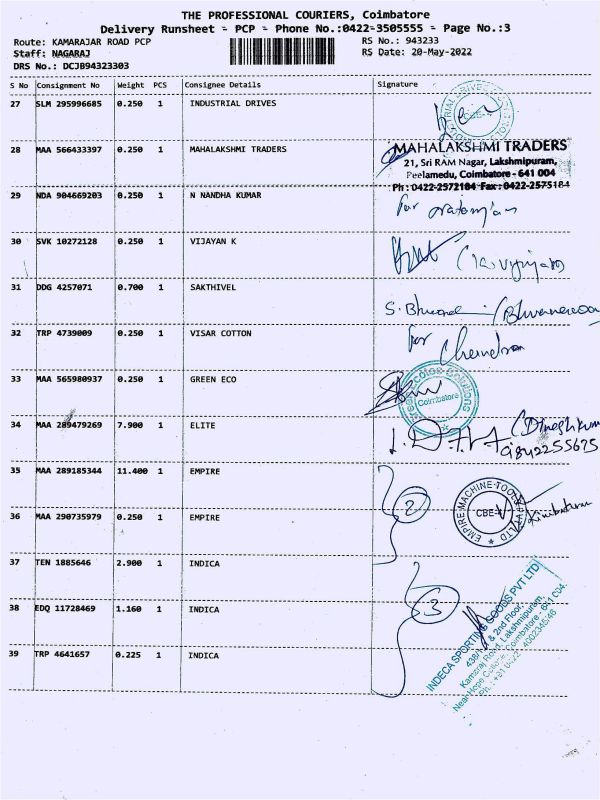 THE PROFESSIONAL COURIERS, Coimbatore
Delivery Runsheet - PCP - Phone No.:0422-3505555 - Page No.:3
Route: KAMARAJAR ROAD PCP
RS No.: 943233
Staff: NAGARAJ
RS Date: 20-May-2022
DRS No.: DCJB94323303
S No Consignment No Weight PCS Consignee Details Signature
27 SLM 295996685 0.250 1 INDUSTRIAL DRIVES
28 MAA 566433397 0.250 1 MAHALAKSHMI TRADERS
MAHALAKSHMI TRADERS
21, Sri RAM Nagar, Lakshmipuram,
Peelamedu, Coimbatore - 641 004
Ph : 0422-2572184 Fax : 0422-2575184
29 NDA 904669203 0.250 1 N NANDHA KUMAR
for
30 SVK 10272128 0.250 1 VIJAYAN K
31 DDG 4257071 0.700 1 SAKTHIVEL
32 TRP 4739009 0.250 1 VISAR COTTON
for
33 MAA 565980937 0.250 1 GREEN ECO
Coimbatore
34 MAA 289479269 7.900 1 ELITE
(Dineshkum
9842255675
35 MAA 289185344 11.400 1 EMPIRE
2
EMPIRE MACHINE TOOLS PVT LTD
CBE-4
36 MAA 290735979 0.250 1 EMPIRE
37 TEN 1885646 2.900 1 INDICA
38 EDQ 11728469 1.160 1 INDICA
3
INDECA SPORTING GOODS PVT LTD
& 2nd Floor,
Kamraj Road, Lakshmipuram,
Coimbatore - 641 004.
39 TRP 4641657 0.225 1 INDICA